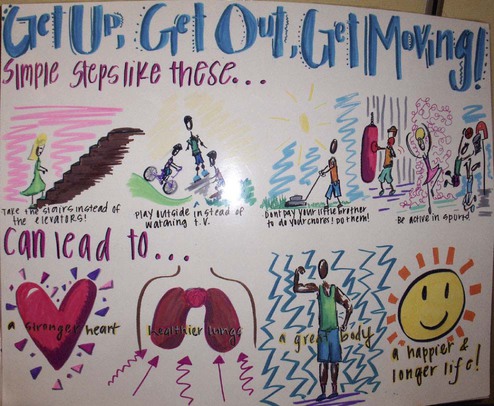 Get Up, Get Out, Get Moving!
Simple Steps like these...
Take the stairs instead of
the elevators!
Play outside instead of
watching T.V.
Dont pay your little brother
to do your chores! Do them!
Be active in sports!
Can lead to...
a stronger heart
healthier lungs
a great body
a happier &
longer life!